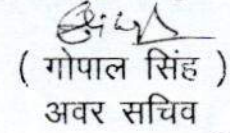 ( गोपाल सिंह )
अवर सचिव